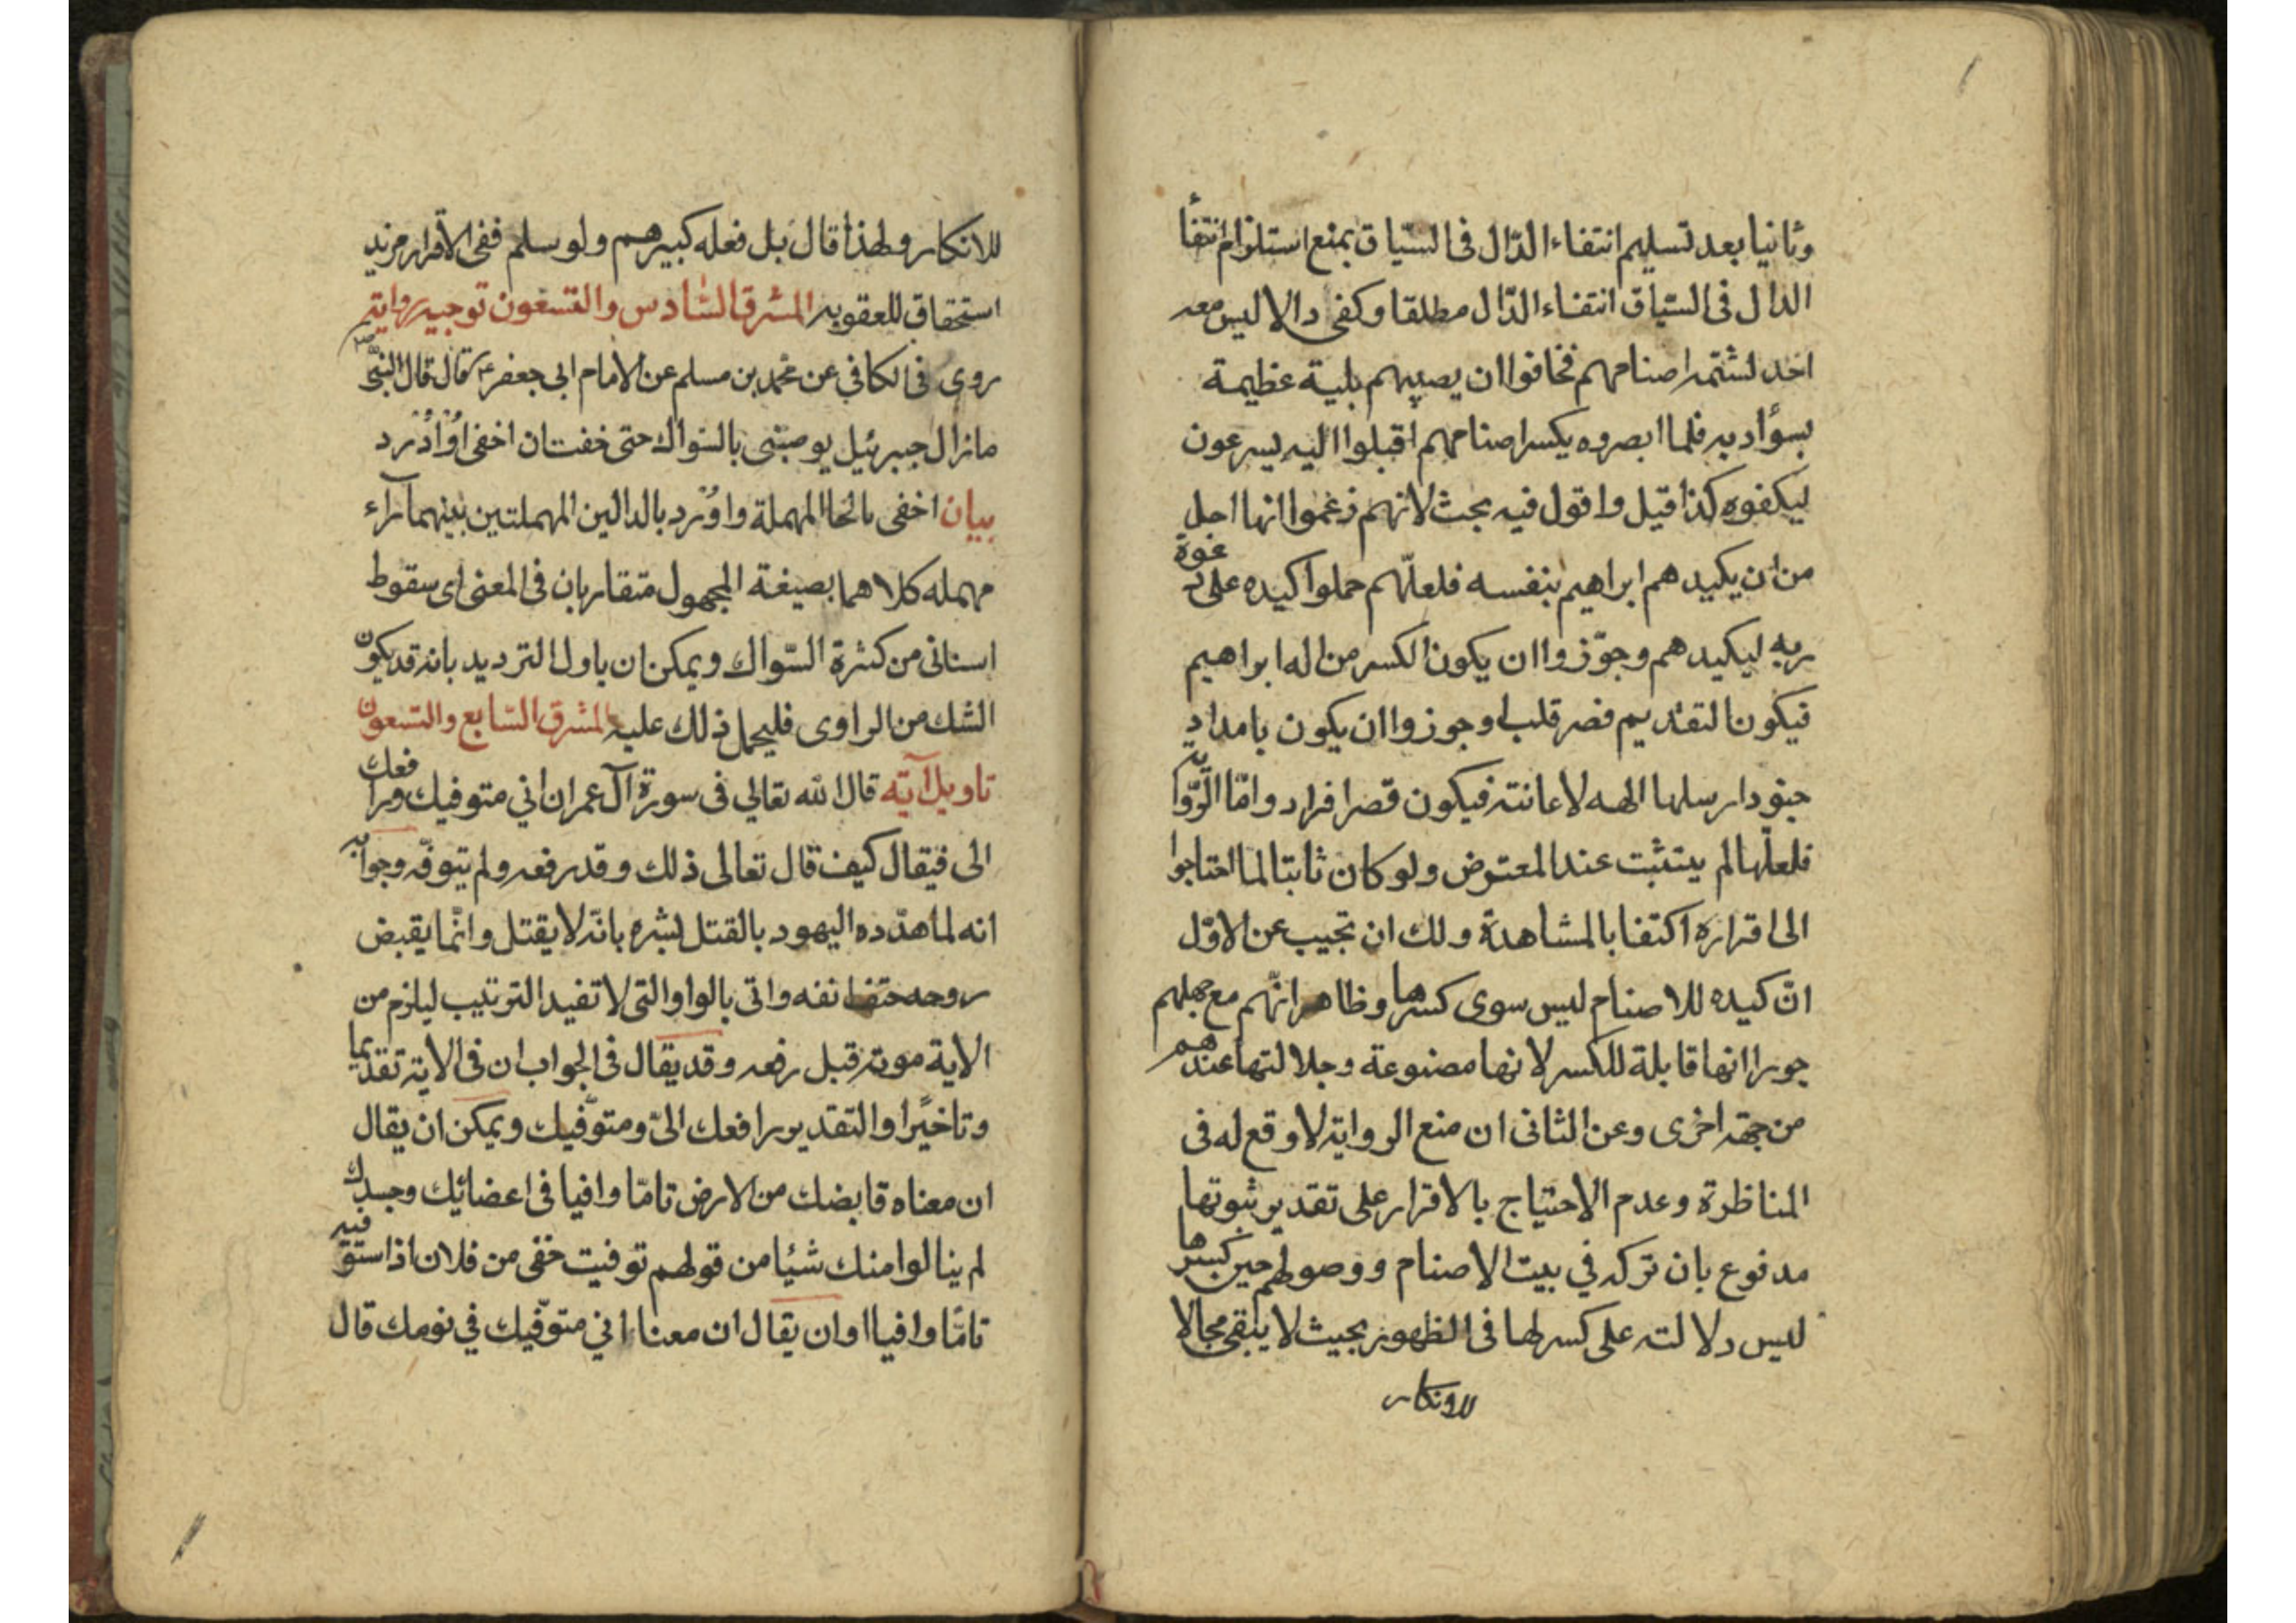 وثانيا بعد تسليم انتفاء الدّال فى السّياق بمنع استلزام انتفأ
الدال فى السّياق انتفاء الدّال مطلقا وكفى دالا ليس معه
اخد لشتمه اصنامهم فخافوا ان يصيبهم بلية عظيمة
بسؤادبه فلما ابصروه يكسر اصنامهم اقبلوا اليه يسرعون
ليكفوه كذا قيل واقول فيه بحث لانهم زعموا انها اجل
من ان يكيدهم ابراهيم بنفسه فلعلّهم حملوا كيده على دعوة
ربه ليكيدهم وجوّزوا ان يكون الكسر من اله ابراهيم
فيكون التقديم قصر قلب او جوزوا ان يكون بامداد
جنود ارسلها الهه لاعانته فيكون قصر افراد وامّا الرّواية
فلعلّها لم يتثبت عند المعترض ولو كان ثابتا لما احتاجوا
الى اقراره اكتفا بالمشاهدة ولك ان تجيب عن الاوّل
انّ كيده للاصنام ليس سوى كسرها وظاهر انّهم مع جهلهم
جوزا انها قابلة للكسر لانها مصنوعة وجلالتها عندهم
من جهة اخرى وعن الثانى ان منع الرواية لا وقع له فى
المناظرة وعدم الاحتياج بالاقرار على تقدير ثبوتها
مدفوع بان تركه في بيت الاصنام ووصولهم حين كسرها
ليس دلالته على كسر لها فى الظهور بحيث لا يبقى مجالا
للانكار
للانكار ولهذا قال بل فعله كبيرهم ولو سلم ففى الاقرار مزيد
استحقاق للعقوبه المشرق السّادس والتسعون توجيه رواية
روى فى الكافي عن محمد بن مسلم عن الامام ابى جعفر ع قال قال النبىّ ص
مازال جبرئيل يوصينى بالسواك حتى خفت ان احفى اوْ اُدْرَد
بيان احفى بالحا المهملة واُدْرد بالدالين المهملتين بينهما رآء
مهمله كلاهما بصيغة المجهول متقاربان فى المعنى اى سقوط
اسنانى من كثرة السّواك ويمكن ان ياول الترديد بانه قد يكون
الشك من الراوى فليحمل ذلك عليه المشرق السّابع والتسعون
تاويل آية قال الله تعالي فى سورة آل عمران اني متوفيك ورافعك
الى فيقال كيف قال تعالى ذلك وقد رفعه ولم يتوفّه وجوابه
انه لما هدّده اليهود بالقتل بشره بانّه لا يقتل وانّما يقبض
روحه حتف انفه واتى بالواو التى لا تفيد الترتيب ليلزم من
الاية موته قبل رفعه وقد يقال فى الجواب ان فى الاية تقديما
وتاخيرًا والتقدير رافعك الىّ ومتوّفيك ويمكن ان يقال
ان معناه قابضك من الارض تامّا وافيا فى اعضائك وجسدك
لم ينالوا منك شيئا من قولهم توفيت حقى من فلان اذا استوفيته
تامّا وافيا او ان يقال ان معناه اني متوّفيك في نومك قال